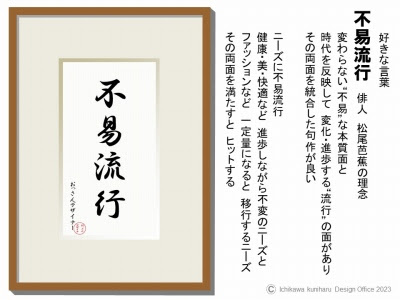 好きな言葉
不易流行 俳人 松尾芭蕉の理念
変わらない“不易”な本質面と
時代を反映して 変化・進歩する“流行”の面があり
その両面を統合した句作が良い
ニーズに不易流行
健康・美・快適など 進歩しながら不変のニーズと
ファッションなど 一定量になると 移行するニーズ
その両面を満たすと ヒットする
不易流行
おっさんデザイナー
© Ichikawa kuniharu Design Office 2023